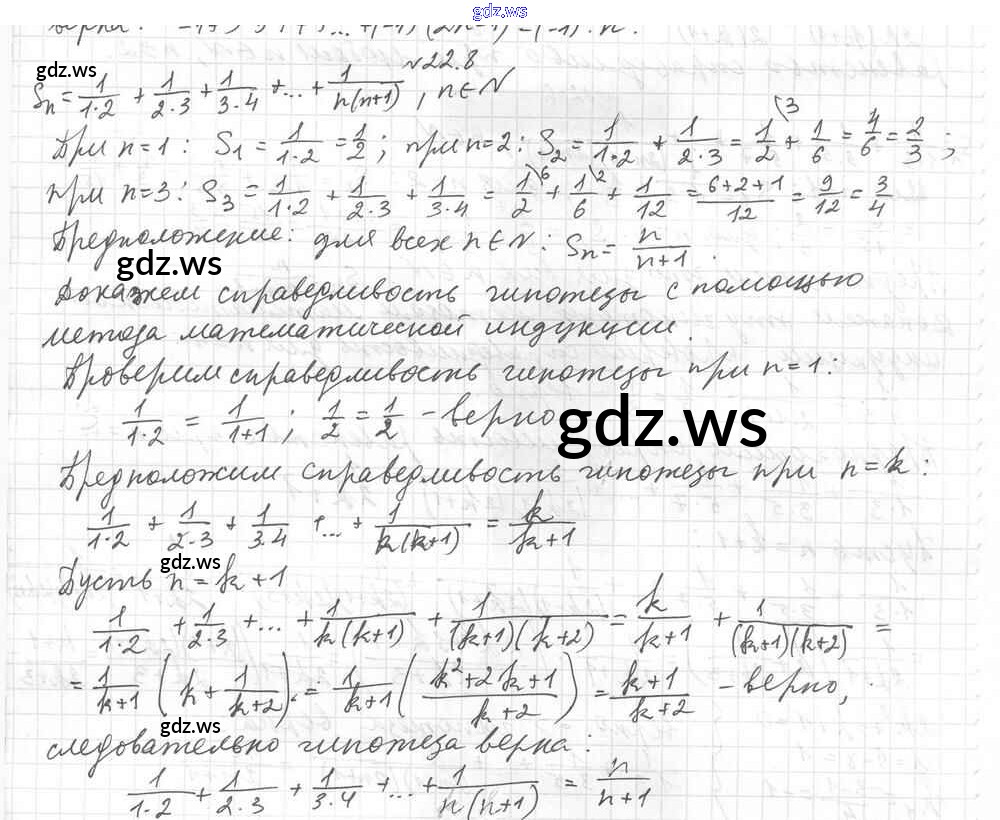 gdz.ws
верна: -1+3-5+7+...+(-1)ⁿ(2n-1)=(-1)ⁿ·n.
№22.8
Sₙ = 1/(1·2) + 1/(2·3) + 1/(3·4) + ... + 1/(n(n+1)), n∈N
При n=1: S₁ = 1/(1·2) = 1/2; при n=2: S₂ = 1/(1·2) + 1/(2·3) = 1/2\3 + 1/6 = 4/6 = 2/3;
при n=3: S₃ = 1/(1·2) + 1/(2·3) + 1/(3·4) = 1/2\6 + 1/6\2 + 1/12 = (6+2+1)/12 = 9/12 = 3/4
Предположение: для всех n∈N: Sₙ = n/(n+1).
gdz.ws
Докажем справедливость гипотезы с помощью
метода математической индукции.
Проверим справедливость гипотезы при n=1:
1/(1·2) = 1/(1+1); 1/2 = 1/2 - верно
gdz.ws
Предположим справедливость гипотезы при n=k:
1/(1·2) + 1/(2·3) + 1/(3·4) + ... + 1/(k(k+1)) = k/(k+1)
gdz.ws
Пусть n=k+1
1/(1·2) + 1/(2·3) + ... + 1/(k(k+1)) + 1/((k+1)(k+2)) = k/(k+1) + 1/((k+1)(k+2)) =
= 1/(k+1) (k + 1/(k+2)) = 1/(k+1) ((k²+2k+1)/(k+2)) = (k+1)/(k+2) - верно,
gdz.ws
следовательно гипотеза верна:
1/(1·2) + 1/(2·3) + 1/(3·4) + ... + 1/(n(n+1)) = n/(n+1)